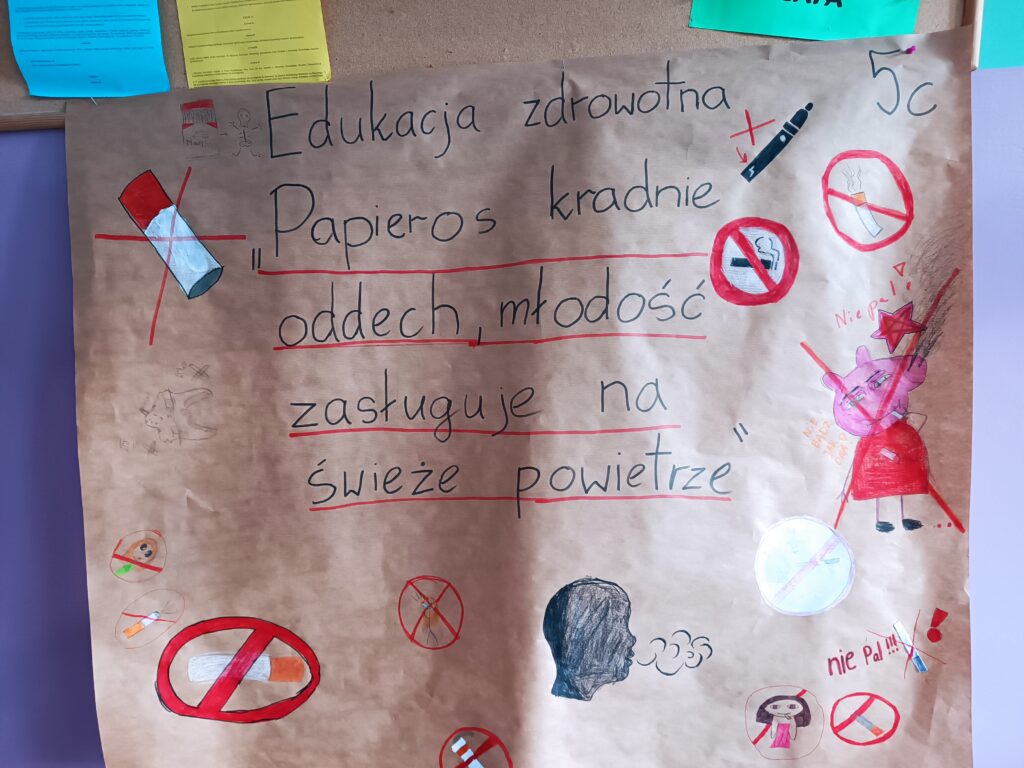 5c
Edukacja zdrowotna
„Papieros kradnie
oddech, młodość
zasługuje na
świeże powietrze”
Nie pal!
nie Pal!!!